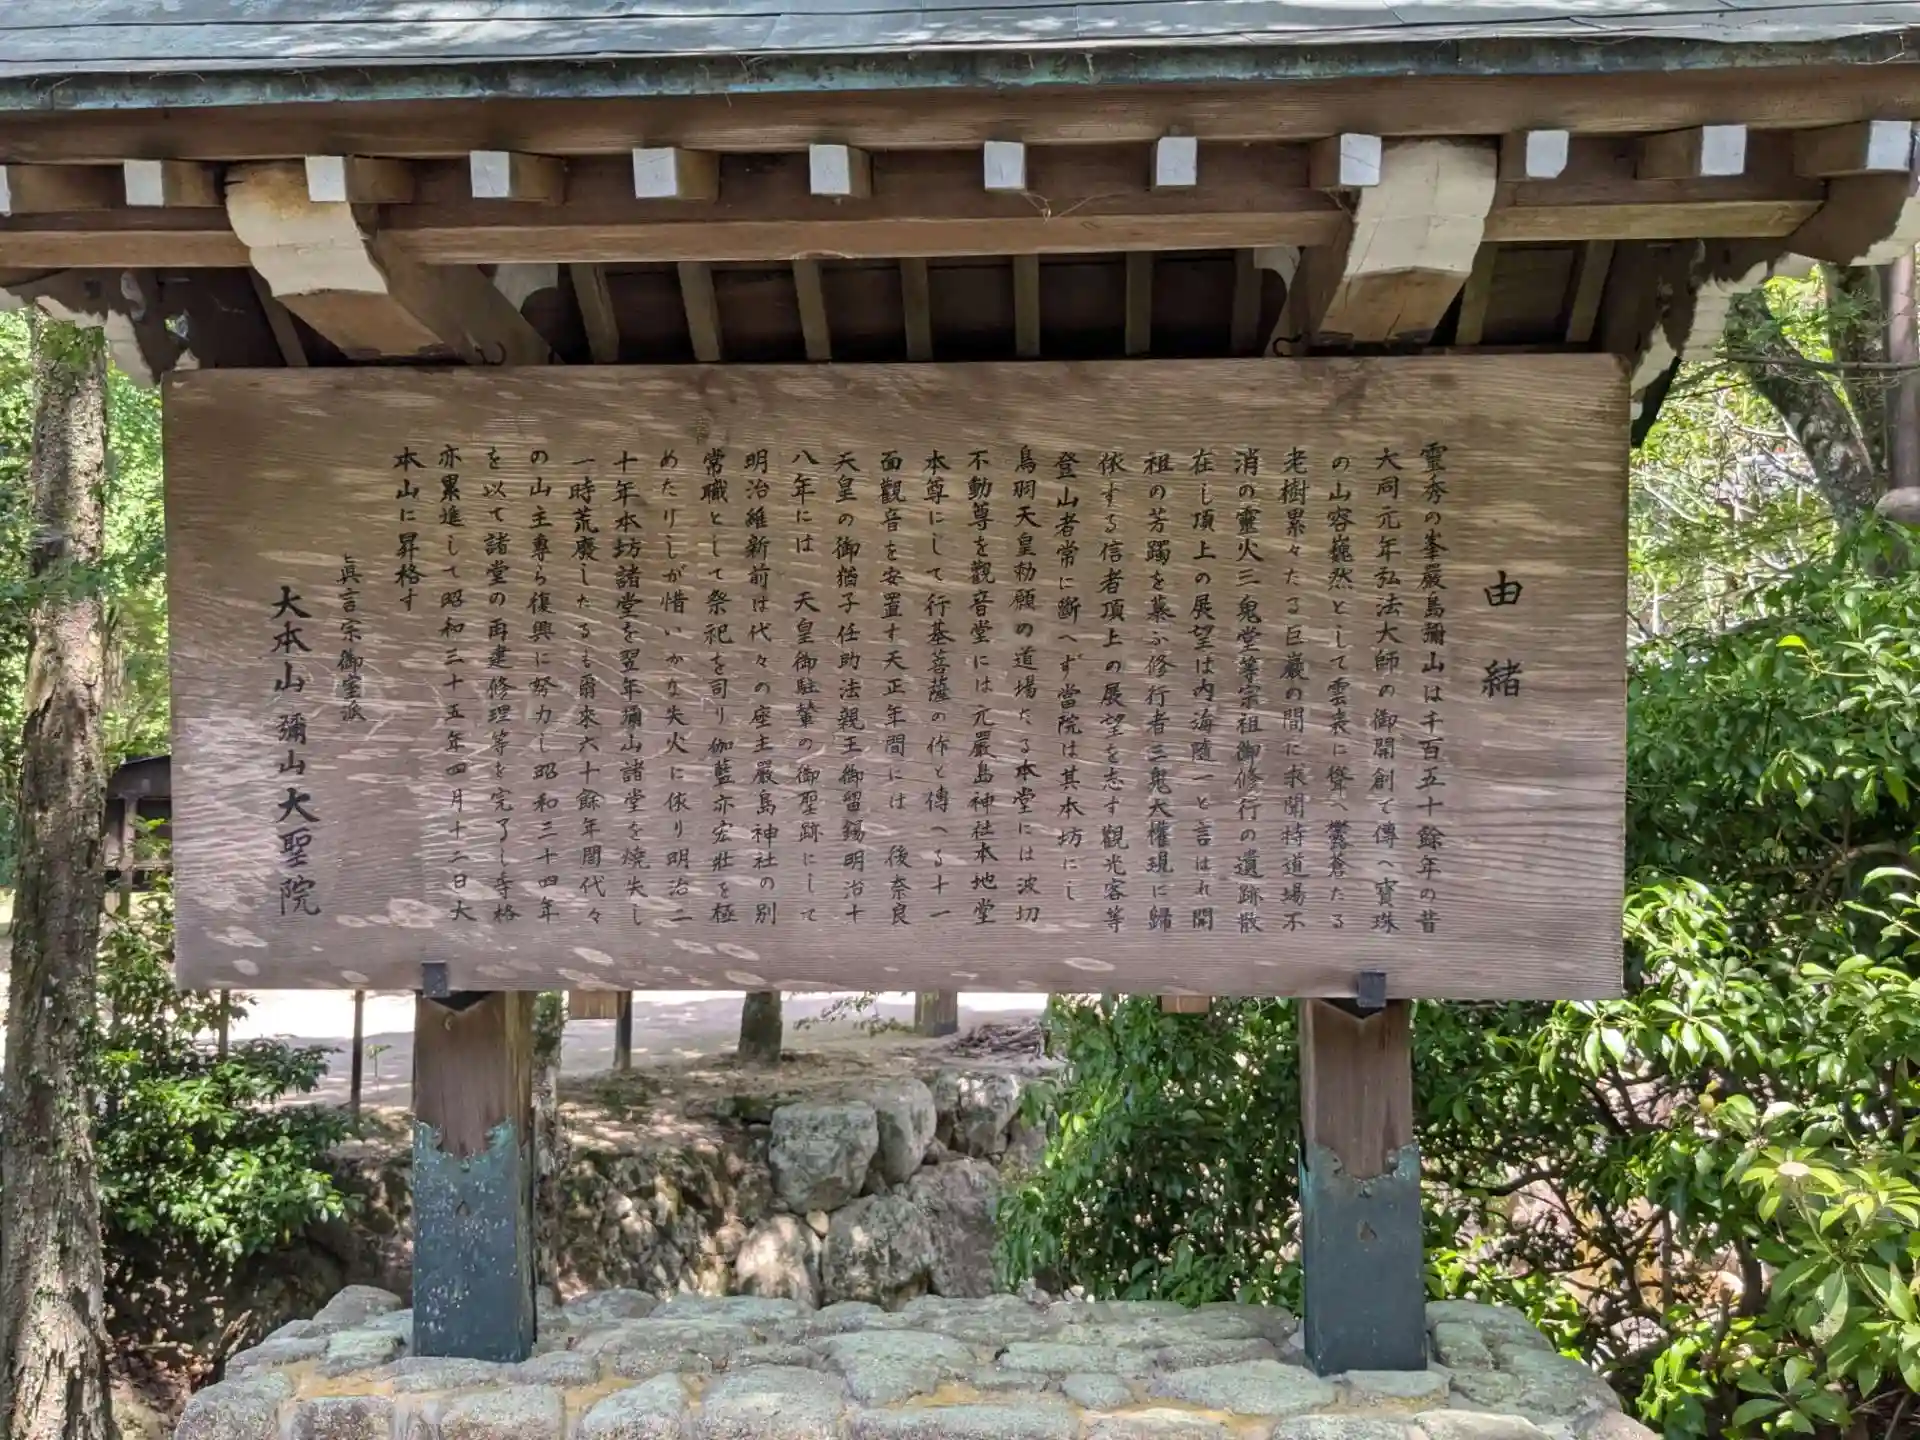 由緒
靈秀の峯嚴島彌山は千百五十餘年の昔
大同元年弘法大師の御開創で傳へ寳珠
の山容巍然として雲表に聳へ鬱蒼たる
老樹累々たる巨巌の間に求聞持道場不
消の靈火三鬼堂等宗祖御修行の遺跡散
在し頂上の展望は内海随一と言はれ開
祖の芳躅を慕ふ修行者三鬼大權現に歸
依する信者頂上の展望を志す觀光客等
登山者常に斷へず當院は其本坊にし
鳥羽天皇勅願の道場たる本堂には波切
不動尊を觀音堂には元嚴島神社本地堂
本尊にして行基菩薩の作と傳へる十一
面觀音を安置す天正年間には 後奈良
天皇の御猶子任助法親王御留錫明治十
八年には 天皇御駐輦の御聖跡にして
明治維新前は代々の座主嚴島神社の別
當職として祭祀を司り伽藍亦宏壯を極
めたりしが惜いかな失火に依り明治二
十年本坊諸堂を翌年彌山諸堂を焼失し
一時荒廢したるも爾來六十餘年間代々
の山主專ら復興に努力し昭和三十四年
を以て諸堂の再建修理等を完了し寺格
亦累進して昭和三十五年四月十二日大
本山に昇格す
眞言宗御室派
大本山 彌山大聖院